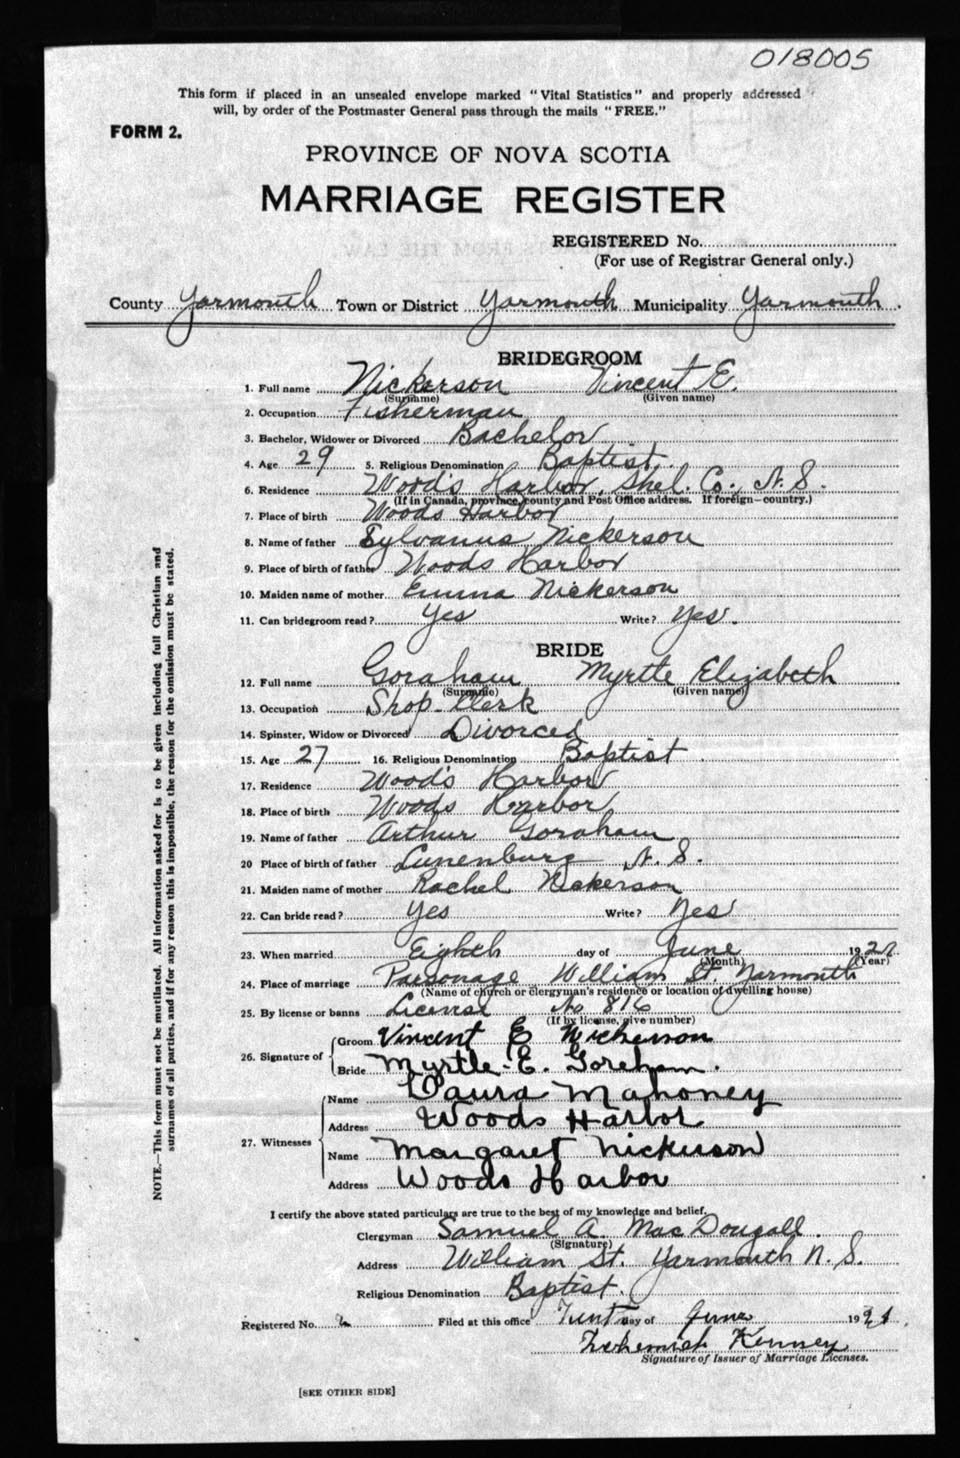 018005
This form if placed in an unsealed envelope marked "Vital Statistics" and properly addressed
will, by order of the Postmaster General pass through the mails "FREE."
FORM 2.
PROVINCE OF NOVA SCOTIA
MARRIAGE REGISTER
REGISTERED No.
(For use of Registrar General only.)
County Yarmouth Town or District Yarmouth Municipality Yarmouth.
BRIDEGROOM
1. Full name Nickerson Vincent E.
(Surname) (Given name)
2. Occupation Fisherman
3. Bachelor, Widower or Divorced Bachelor
4. Age 29 5. Religious Denomination Baptist.
6. Residence Wood's Harbor, Shel. Co., N. S.
(If in Canada, province, county and Post Office address. If foreign—country.)
7. Place of birth Woods Harbor
8. Name of father Sylvanus Nickerson
9. Place of birth of father Woods Harbor
10. Maiden name of mother Emma Nickerson
11. Can bridegroom read? Yes Write? Yes.
BRIDE
12. Full name Goraham Myrtle Elizabeth
(Surname) (Given name)
13. Occupation Shop-Clerk
14. Spinster, Widow or Divorced Divorced
15. Age 27 16. Religious Denomination Baptist
17. Residence Wood's Harbor
18. Place of birth Woods Harbor
19. Name of father Arthur Goraham
20 Place of birth of father Lunenburg N. S.
21. Maiden name of mother Rachel Nickerson
22. Can bride read? Yes Write? Yes
23. When married Eighth day of June 192
(Month) (Year)
24. Place of marriage Parsonage William St. Yarmouth
(Name of church or clergyman's residence or location of dwelling house)
25. By license or banns License No 816
(If by license, give number)
26. Signature of Groom Vincent E Nickerson
Bride Myrtle E. Goreham.
27. Witnesses
Name Laura Mahoney
Address Woods Harbor
Name Margaret Nickerson
Address Woods Harbor
I certify the above stated particulars are true to the best of my knowledge and belief.
Clergyman Samuel A. MacDougall.
(Signature)
Address William St. Yarmouth N. S.
Religious Denomination Baptist.
Registered No. Filed at this office day of June 19
Kenney
Signature of Issuer of Marriage Licenses.
[SEE OTHER SIDE]
NOTE.—This form must not be mutilated. All information asked for is to be given including full Christian and
surnames of all parties, and if for any reason this is impossible, the reason for the omission must be stated.